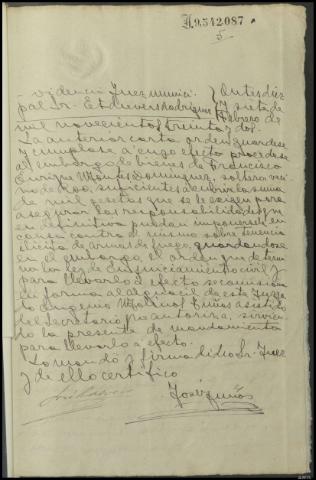 A.9.542.087
5
videncia Juez munici-
pal Sr. Etcheverz Rodríguez
diez
y siete de
Febrero de
mil novecientos treinta y dos.
La anterior carta orden guardese
y cumplase a cuyo efecto procedase
al embargo de bienes de Francisco
Enrique Montes Dominguez, soltero, veci
no de suficientes a cubrir la suma
de mil pesetas que se le exigen para
asegurar las responsabilidades que
en definitiva puedan imponersele en
causa contra el mismo sobre tenencia
ilicita de armas de fuego, guardandose
en el embargo el orden que determi
na la ley de Enjuiciamiento civil y
para llevarlo a efecto se comisiona
en forma al alguacil de este Juzga
do Eugenio Molina Zuños asistido
del Secretario que autoriza, sirvien
do la presente de mandamiento
para llevarlo a efecto.
Lo mandó y firma dicho Sr. Juez
y de ello certifico
José Zuños